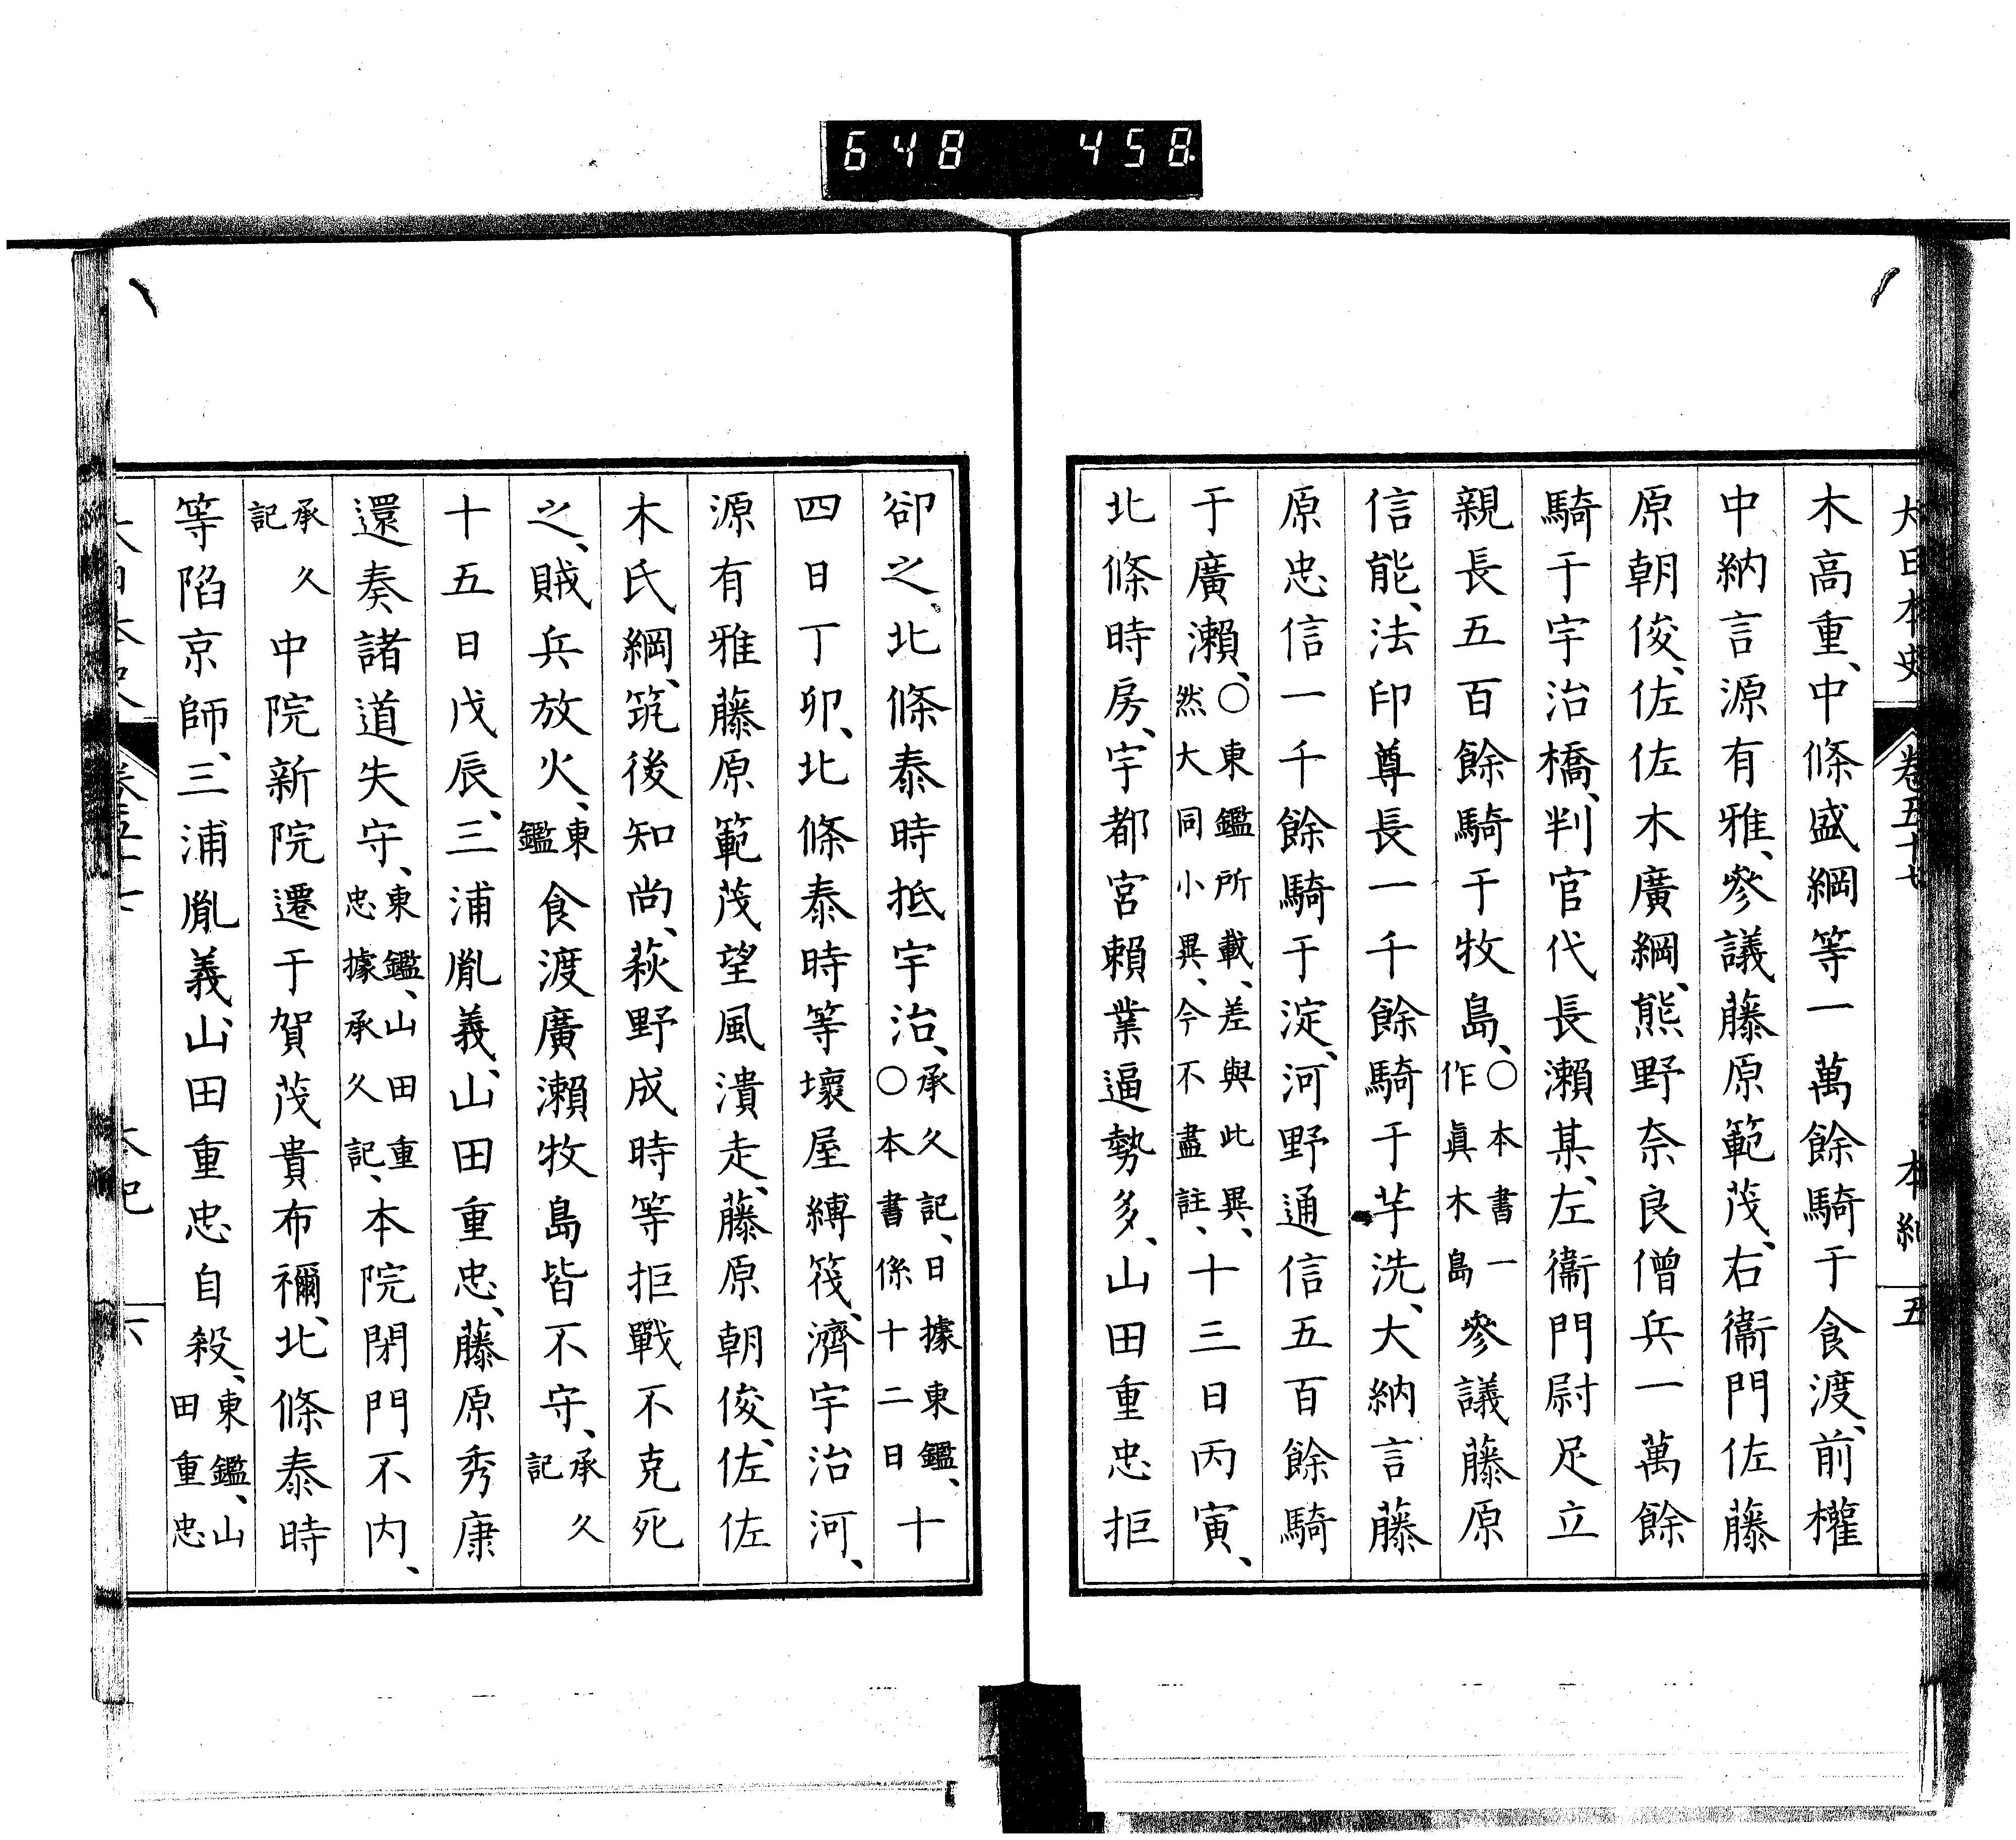 648 458
大日本史 卷五十七 本紀 五
木高重、中條盛綱等一萬餘騎于食渡、前權
中納言源有雅、參議藤原範茂、右衞門佐藤
原朝俊、佐佐木廣綱、熊野奈良僧兵一萬餘
騎于宇治橋、判官代長瀨某、左衞門尉足立
親長五百餘騎于牧島、○本書一作眞木島參議藤原
信能、法印尊長一千餘騎于芋洗、大納言藤
原忠信一千餘騎于淀、河野通信五百餘騎
于廣瀨、○東鑑所載、差與此異、然大同小異、今不盡註、十三日丙寅、
北條時房、宇都宮賴業逼勢多、山田重忠拒
卻之、北條泰時抵宇治、承久記、日據東鑑、○本書係十二日十
四日丁卯、北條泰時等壞屋縛筏、濟宇治河、
源有雅藤原範茂望風潰走、藤原朝俊、佐佐
木氏綱、筑後知尚、萩野成時等拒戰不克死
之、賊兵放火、東鑑食渡廣瀨牧島皆不守、承久記
十五日戊辰、三浦胤義、山田重忠、藤原秀康
還奏諸道失守、東鑑、山田重忠據承久記、本院閉門不內、
承久記中院新院遷于賀茂貴布禰、北條泰時
等陷京師、三浦胤義、山田重忠自殺、東鑑、山田重忠
大日本史 卷五十七 本紀 六